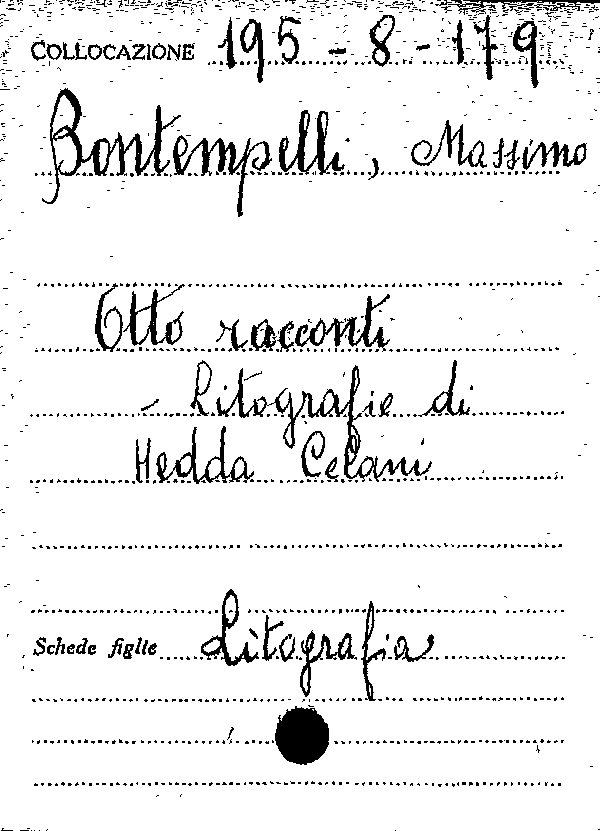 COLLOCAZIONE 195-8-179
Bontempelli, Massimo
Otto racconti
- Litografie di
Hedda Celani
Schede figlie Litografia